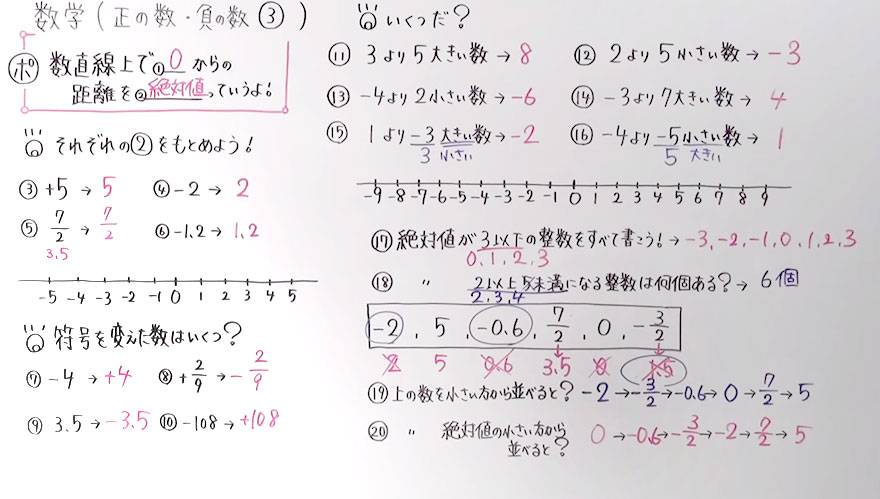 数学（正の数・負の数③）
ポ 数直線上で①0からの
距離を②絶対値っていうよ！
それぞれの②をもとめよう！
③ +5 → 5 ④ -2 → 2
⑤ 7/2 → 7/2 ⑥ -1.2 → 1.2
3.5
-5 -4 -3 -2 -1 0 1 2 3 4 5
符号を変えた数はいくつ？
⑦ -4 → +4 ⑧ +2/9 → -2/9
⑨ 3.5 → -3.5 ⑩ -108 → +108
いくつだ？
⑪ 3より5大きい数 → 8 ⑫ 2より5小さい数 → -3
⑬ -4より2小さい数 → -6 ⑭ -3より7大きい数 → 4
⑮ 1より-3大きい数 → -2 ⑯ -4より-5小さい数 → 1
3 小さい 5 大きい
-9 -8 -7 -6 -5 -4 -3 -2 -1 0 1 2 3 4 5 6 7 8 9
⑰ 絶対値が3以下の整数をすべて書こう！ → -3, -2, -1, 0, 1, 2, 3
0, 1, 2, 3
⑱ 〃 2以上5未満になる整数は何個ある？ → 6個
2, 3, 4
-2, 5, -0.6, 7/2, 0, -3/2
2 5 0.6 3.5 0 1.5
⑲ 上の数を小さい方から並べると？ -2 → -3/2 → -0.6 → 0 → 7/2 → 5
⑳ 〃 絶対値の小さい方から
並べると？ 0 → -0.6 → -3/2 → -2 → 7/2 → 5